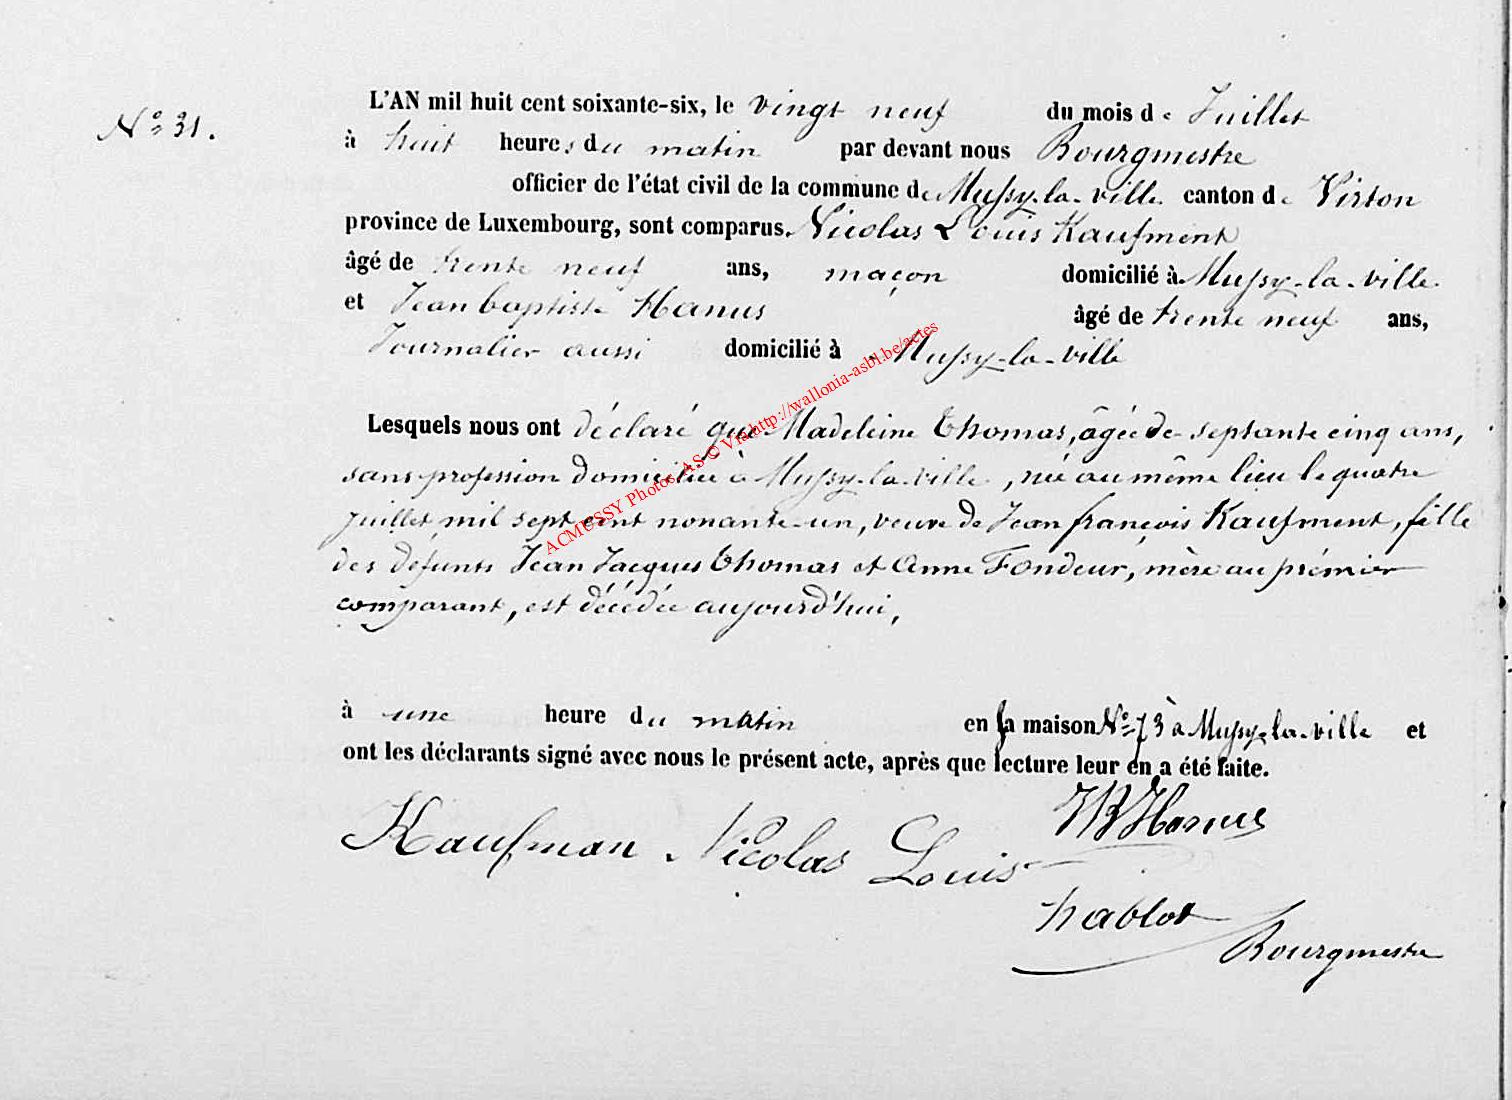 L'AN mil huit cent soixante-six, le vingt neuf du mois de Juillet
N° 31.
à huit heures du matin par devant nous Bourgmestre
officier de l'état civil de la commune de Mussy-la-ville canton de Virton
province de Luxembourg, sont comparus Nicolas Louis Kaufment
âgé de trente neuf ans, maçon domicilié à Mussy-la-ville
et Jean baptiste Hanus âgé de trente neuf ans,
Journalier aussi domicilié à Mussy-la-ville
Lesquels nous ont déclaré que Madeleine Thomas, âgée de septante cinq ans,
sans profession domiciliée à Mussy-la-ville, née au même lieu le quatre
juillet mil sept cent nonante-un, veuve de Jean françois Kaufment, fille
des défunts Jean Jacques Thomas et Anne Fondeur, mère au prémier
comparant, est décédée aujourd'hui,
à une heure du matin en sa maison N° 73 à Mussy-la-ville et
ont les déclarants signé avec nous le présent acte, après que lecture leur en a été faite.
Kaufman Nicolas Louis
JB Hanus
hablot
Bourgmestre
ACMUSSY Photos AS © Via http://wallonia-asbl.be/actes